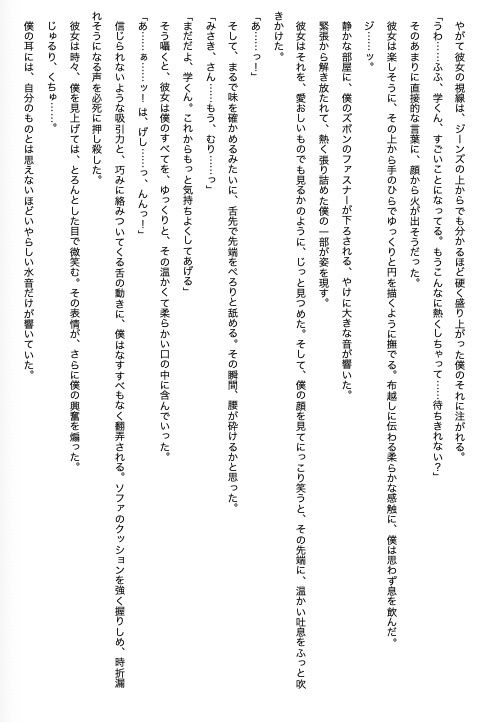 やがて彼女の視線は、ジーンズの上からでも分かるほど硬く盛り上がった僕のそれに注がれる。
「うわ……ふふ、学くん、すごいことになってる。もうこんなに熱くしちゃって……待ちきれない？」
そのあまりに直接的な言葉に、顔から火が出そうだった。
彼女は楽しそうに、その上から手のひらでゆっくりと円を描くように撫でる。布越しに伝わる柔らかな感触に、僕は思わず息を飲んだ。
ジ……ッ。
静かな部屋に、僕のズボンのファスナーが下ろされる、やけに大きな音が響いた。
緊張から解き放たれて、熱く張り詰めた僕の一部が姿を現す。
彼女はそれを、愛おしいものでも見るかのように、じっと見つめた。そして、僕の顔を見てにっこり笑うと、その先端に、温かい吐息をふっと吹
きかけた。
「あ……っ！」
そして、まるで味を確かめるみたいに、舌先で先端をぺろりと舐める。その瞬間、腰が砕けるかと思った。
「みさき、さん……もう、むり……っ」
「まだだよ、学くん。これからもっと気持ちよくしてあげる」
そう囁くと、彼女は僕のすべてを、ゆっくりと、その温かくて柔らかい口の中に含んでいった。
「あ……ぁ……ッ！　は、げし……っ、んんっ！」
信じられないような吸引力と、巧みに絡みついてくる舌の動きに、僕はなすすべもなく翻弄される。ソファのクッションを強く握りしめ、時折漏
れそうになる声を必死に押し殺した。
彼女は時々、僕を見上げては、とろんとした目で微笑む。その表情が、さらに僕の興奮を煽った。
じゅるり、くちゅ……。
僕の耳には、自分のものとは思えないほどいやらしい水音だけが響いていた。